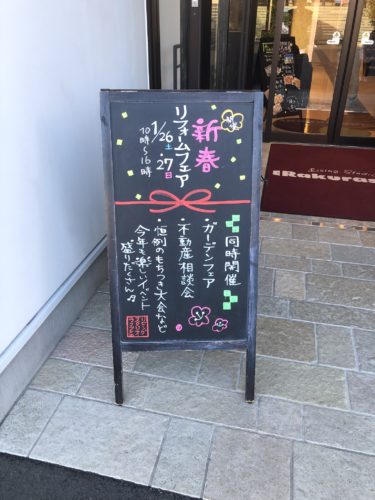 新春
リフォームフェア
1/26土・27日
10時～16時
同時開催
・ガーデンフェア
・不動産相談会
・恒例のもちつき大会など
今年も楽しいイベント
盛りだくさん♪
Living Studio
Rakuras